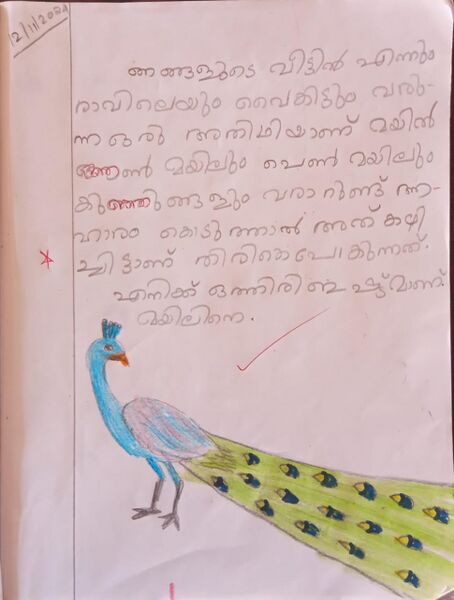 12/11/2024
ഞങ്ങളുടെ വീട്ടിൽ എന്നും
രാവിലെയും വൈകിട്ടും വരു-
ന്ന ഒരു അതിഥിയാണ് മയിൽ
ആൺ മയിലും പെൺ മയിലും
കുഞ്ഞുങ്ങളും വരാറുണ്ട് ആ-
ഹാരം കൊടുത്താൽ അത് കഴി
ച്ചിട്ടാണ് തിരികെപോകുന്നത്.
എനിക്ക് ഒത്തിരിഇഷ്ട്ടമാണ്
മയിലിനെ.